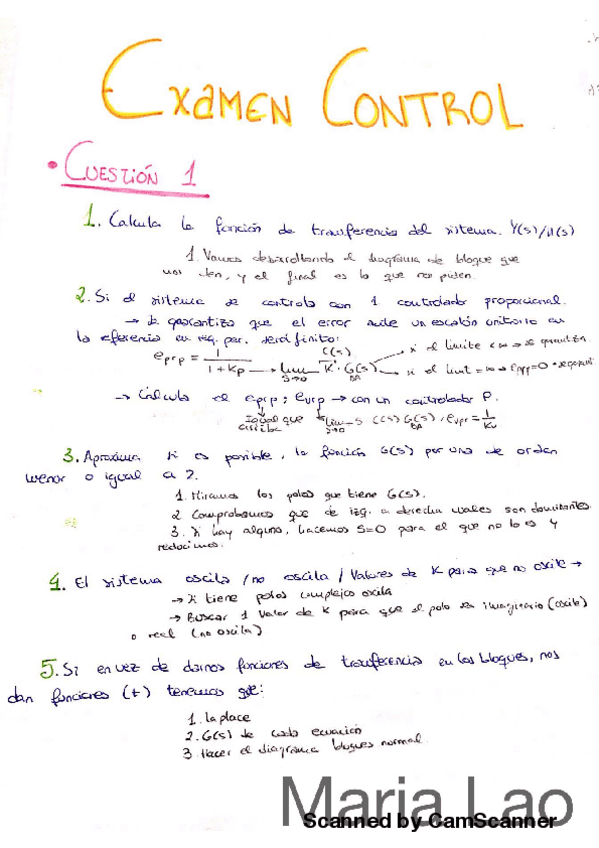 EXAMEN CONTROL
• CUESTIÓN 1
1. Calcula la función de transferencia del sistema. Y(s)/U(s)
1. Vamos desarrollando el diagrama de bloque que
nos den, y el final es lo que nos piden.
2. Si el sistema se controla con 1 controlador proporcional.
→ Se garantiza que el error ante un escalón unitario en
la referencia en rég. per. será finito:
e_prp = 1/(1+Kp) → lim s→0 C(s) K · G(s)BA
→ si el límite
→ si el limit = ∞ → e_rpp = 0
→ Calcula el e_prp ; e_vrp → con un controlador P.
Igual que arriba
lim s→0 s C(s) G(s)BA ; e_vpr = 1/Kv
3. Aproxima si es posible, la función G(s) por una de orden
menor o igual a 2.
1. Miramos los polos que tiene G(s).
2. Comprobamos que de izq. a derecha cuales son dominantes.
3. Si hay alguno, hacemos S=0 para el que no lo es y
reducimos.
4. El sistema oscila / no oscila / Valores de K para que no oscile →
→ Si tiene polos complejos oscila
→ Buscar 1 valor de K para que el polo sea imaginario (oscile)
o real (no oscila)
5. Si en vez de darnos funciones de transferencia en los bloques, nos
dan funciones (t) tenemos que:
1. la place
2. G(s) de cada ecuación
3. Hacer el diagrama bloques normal.
Maria Lao
Scanned by CamScanner